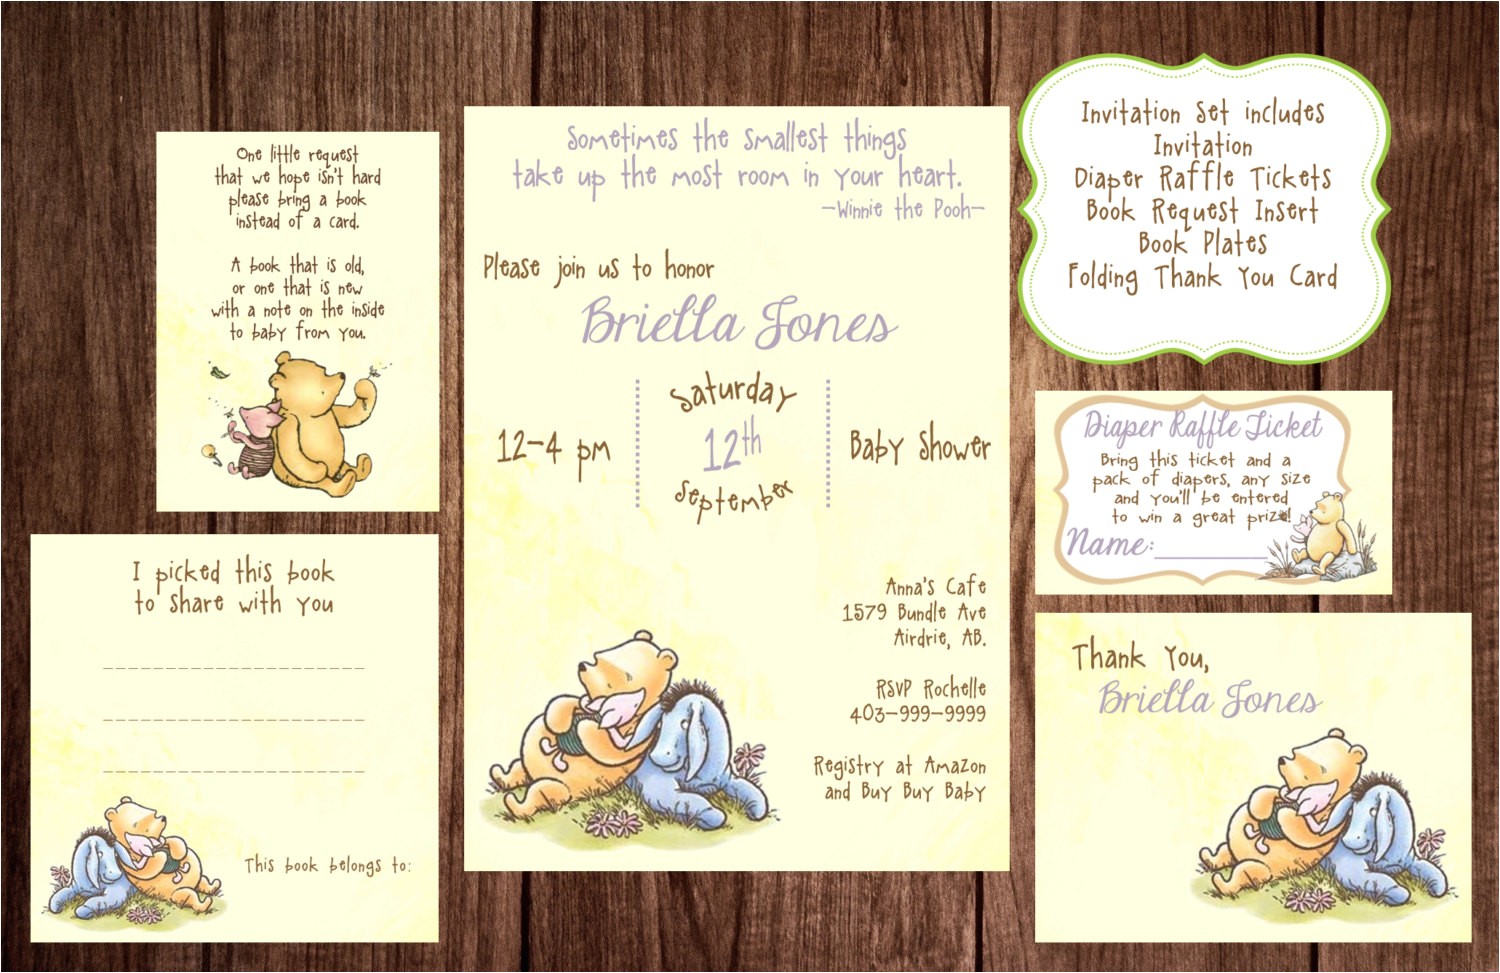 One little request
that we hope isn't hard
please bring a book
instead of a card.
A book that is old,
or one that is new
with a note on the inside
to baby from you.
I picked this book
to share with you
This book belongs to:
Sometimes the smallest things
take up the most room in your heart.
-Winnie the Pooh-
Please join us to honor
Briella Jones
12-4 pm
Saturday
12th
September
Baby Shower
Anna's Cafe
1579 Bundle Ave
Airdrie, AB.
RSVP Rochelle
403-999-9999
Registry at Amazon
and Buy Buy Baby
Invitation Set includes
Invitation
Diaper Raffle Tickets
Book Request Insert
Book Plates
Folding Thank You Card
Diaper Raffle Ticket
Bring this ticket and a
pack of diapers, any size
and you'll be entered
to win a great prize!
Name:
Thank You,
Briella Jones